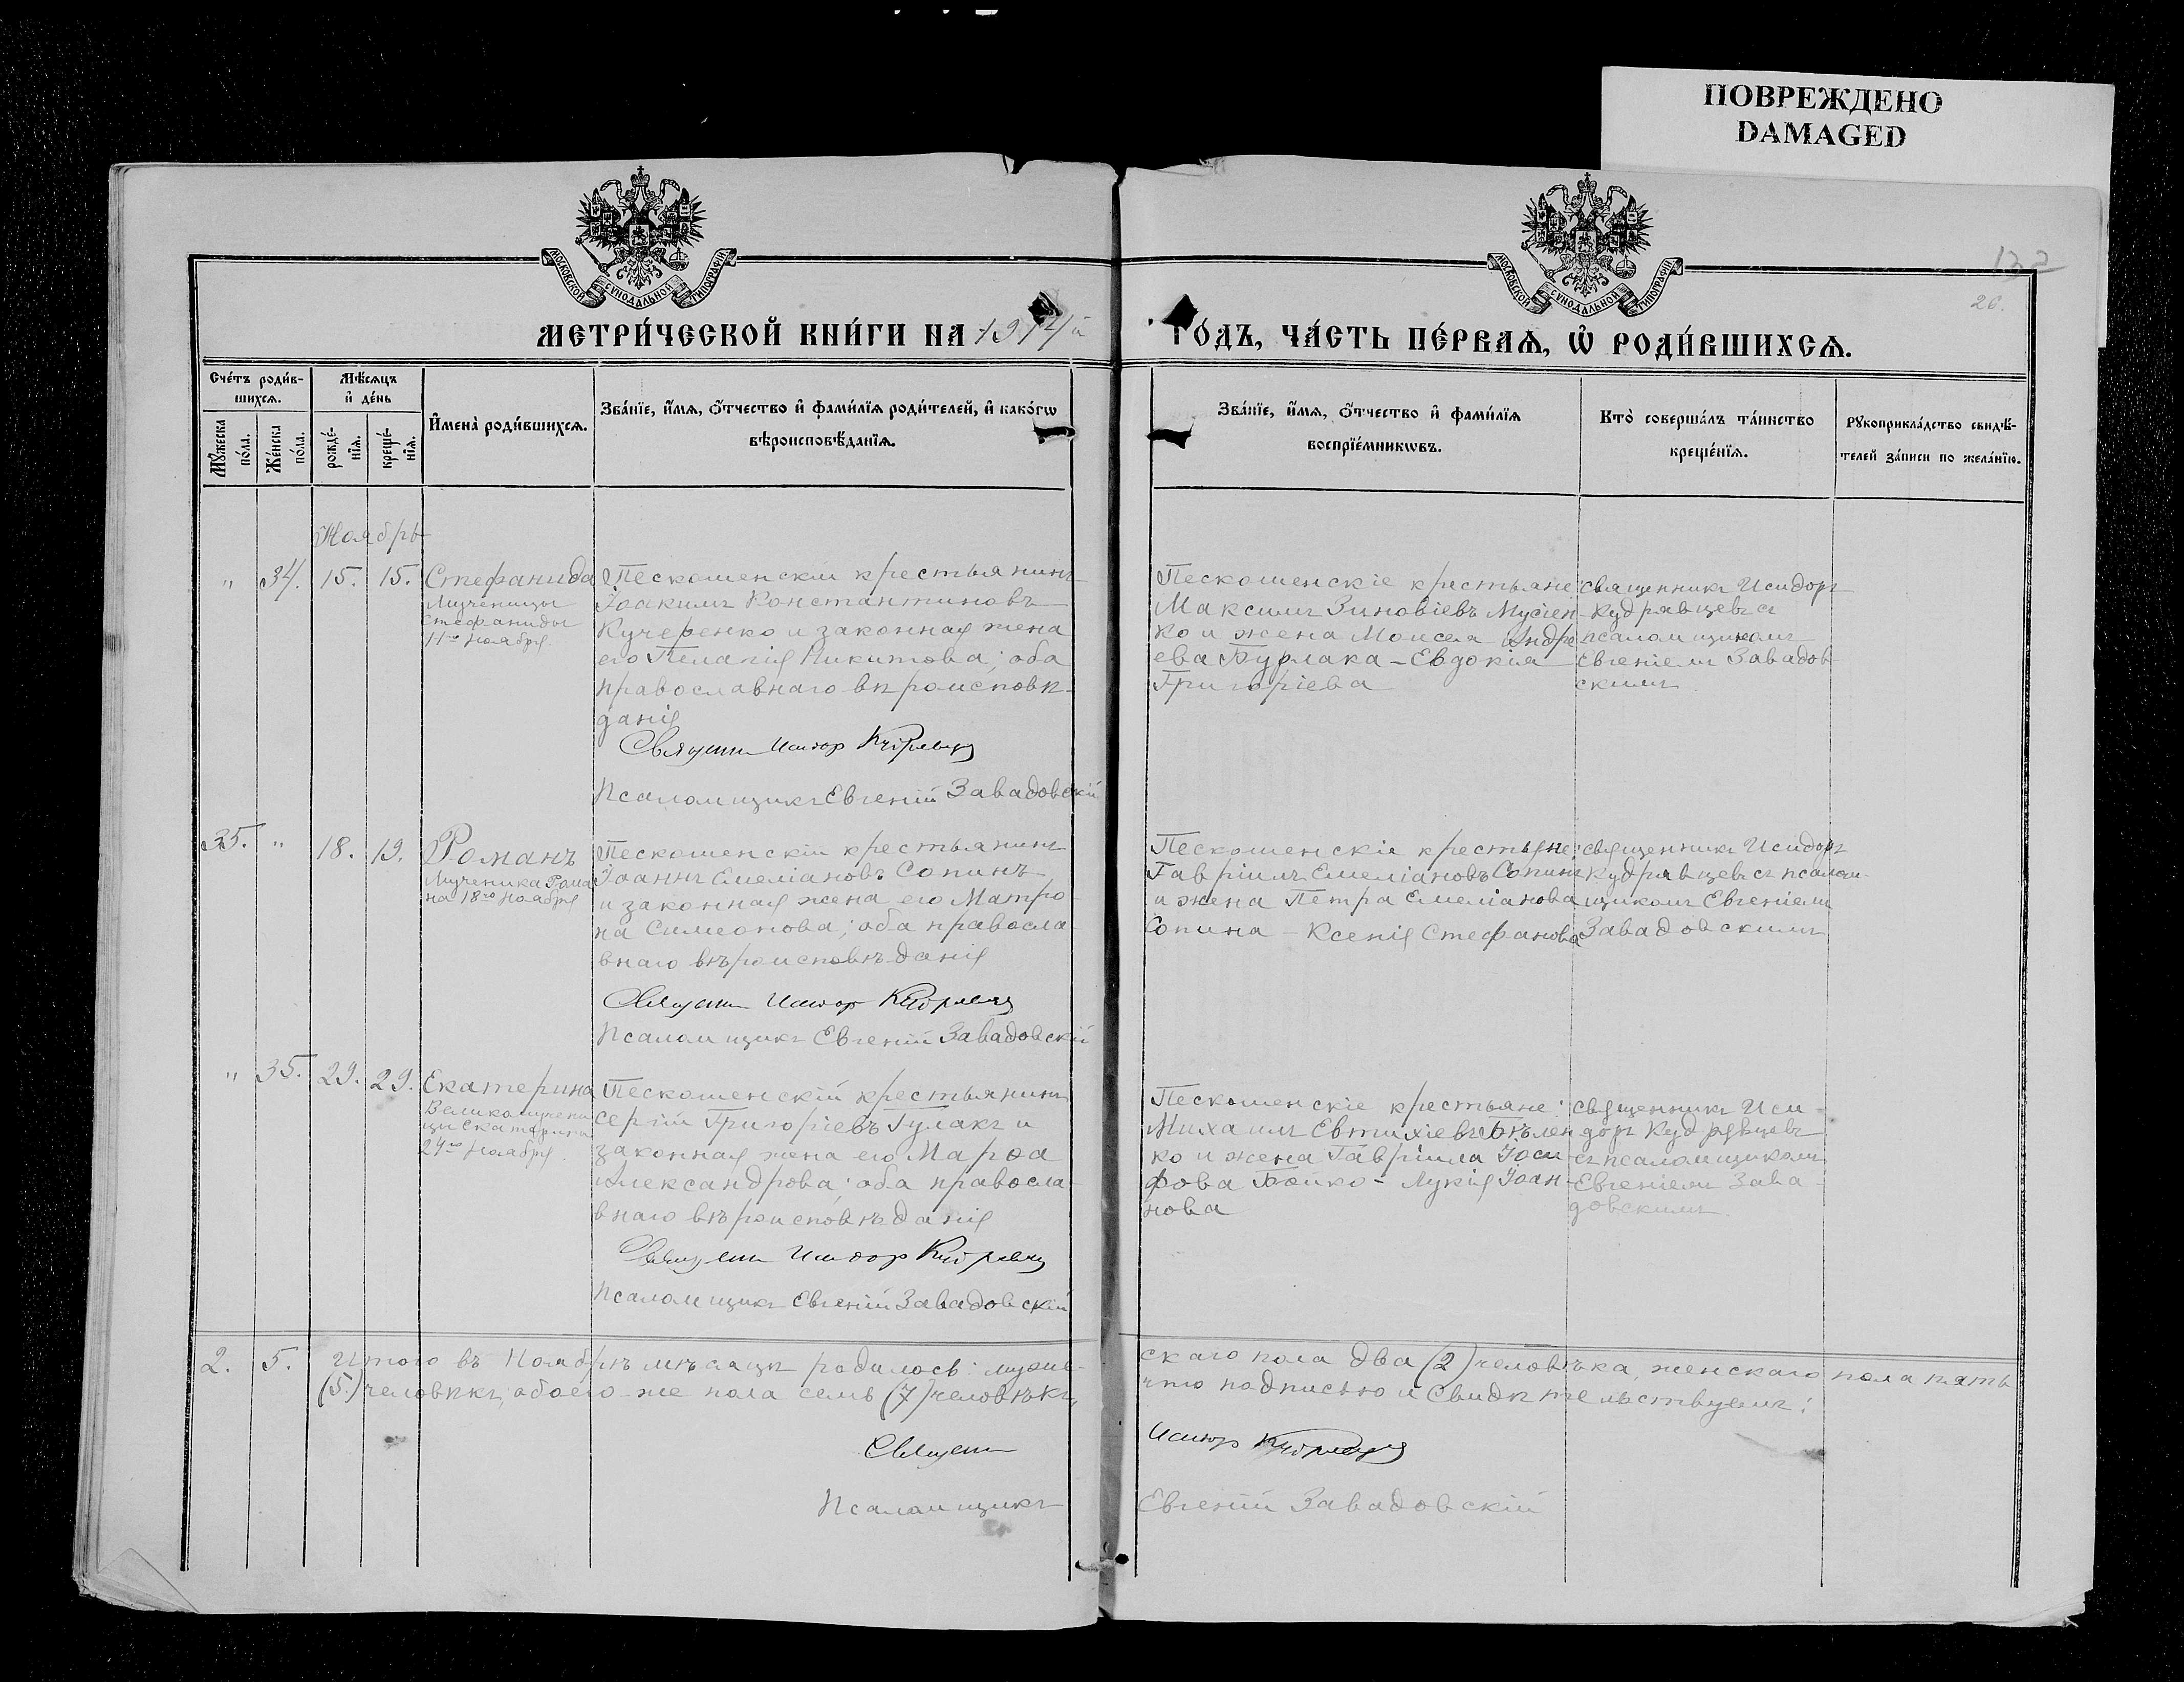 ПОВРЕЖДЕНО
DAMAGED
МОСКОВСКОЙ СѴНОДАЛЬНОЙ ТИПОГРАФІИ
МОСКОВСКОЙ СѴНОДАЛЬНОЙ ТИПОГРАФІИ
26.
МЕТРИ́ЧЕСКОЙ КНИ́ГИ НА 1914й
ГО́ДЪ, ЧА́СТЬ ПЕ́РВАѦ, Ѡ҆ РОДИ́ВШИХСѦ.
Сче́тъ роди́в-
шихсѧ.
Мѣ́сѧцъ
и҆ де́нь
Мꙋ́жеска
по́ла.
Же́нска
по́ла.
рожде́-
нїѧ.
креще́-
нїѧ.
И҆мена̀ роди́вшихсѧ.
Зва́нїе, и҆́мѧ, ѻ҆́тчество и҆ фами́лїѧ роди́телей, и҆ како́гѡ
вѣроисповѣ́данїѧ.
Зва́нїе, и҆́мѧ, ѻ҆́тчество и҆ фами́лїѧ
воспрїе́мникѡвъ.
Кто̀ соверша́лъ та́инство
креще́нїѧ.
Рꙋкоприкла́дство свидѣ́-
телей за́писи по жела́нїю.
Ноябрь
" 34. 15. 15. Стефанида
Мученицы
Стефаниды
11го Ноября.
Пескошенскій крестьянинъ
Іоакимъ Константиновъ
Кучеренко и законная жена
его Пелагія Никитова; оба
православнаго вѣроисповѣ-
данія
Священникъ Исидоръ Кудрявцевъ
Псаломщикъ Евгеній Завадовскій
Пескошенскіе крестьяне:
Максимъ Зиновіевъ Мусіен-
ко и жена Моисея Андре-
ева Бурлака - Евдокія
Григоріева
священникъ Исидоръ
Кудрявцевъ съ
псаломщикомъ
Евгеніемъ Завадов-
скимъ
35. " 18. 19. Романъ
Мученика Рома
на 18го Ноября
Пескошенскій крестьянинъ
Іоаннъ Емеліановъ Сопинъ
и законная жена его Матро-
на Симеонова; оба правосла-
внаго вѣроисповѣданія
Священникъ Исидоръ Кудрявцевъ
Псаломщикъ Евгеній Завадовскій
Пескошенскіе крестьяне:
Гавріилъ Емеліановъ Сопинъ
и жена Петра Емеліанова
Сопина - Ксенія Стефанова
священникъ Исидоръ
Кудрявцевъ съ псалом-
щикомъ Евгеніемъ
Завадовскимъ
" 35. 29. 29. Екатерина
Великомучени
цы Екатерины
24го Ноября.
Пескошенскій крестьянинъ
Сергій Григоріевъ Гулакъ и
законная жена его Марѳа
Александрова; оба правосла-
внаго вѣроисповѣданія
Священникъ Исидоръ Кудрявцевъ
Псаломщикъ Евгеній Завадовскій
Пескошенскіе крестьяне:
Михаилъ Евтихіевъ Бѣлен
ко и жена Гавріила Іоси-
фова Бойко - Лукія Іоан-
нова
священникъ Иси-
доръ Кудрявцевъ
съ псаломщикомъ
Евгеніемъ Зава-
довскимъ
2. 5. Итого въ Ноябрѣ мѣсяцѣ родилось: муже-
скаго пола два (2) человѣка, женскаго пола пять
(5) человѣкъ; обоего же пола семь (7) человѣкъ,
что подписью и свидѣтельствуемъ:
Священникъ Исидоръ Кудрявцевъ
Псаломщикъ Евгеній Завадовскій